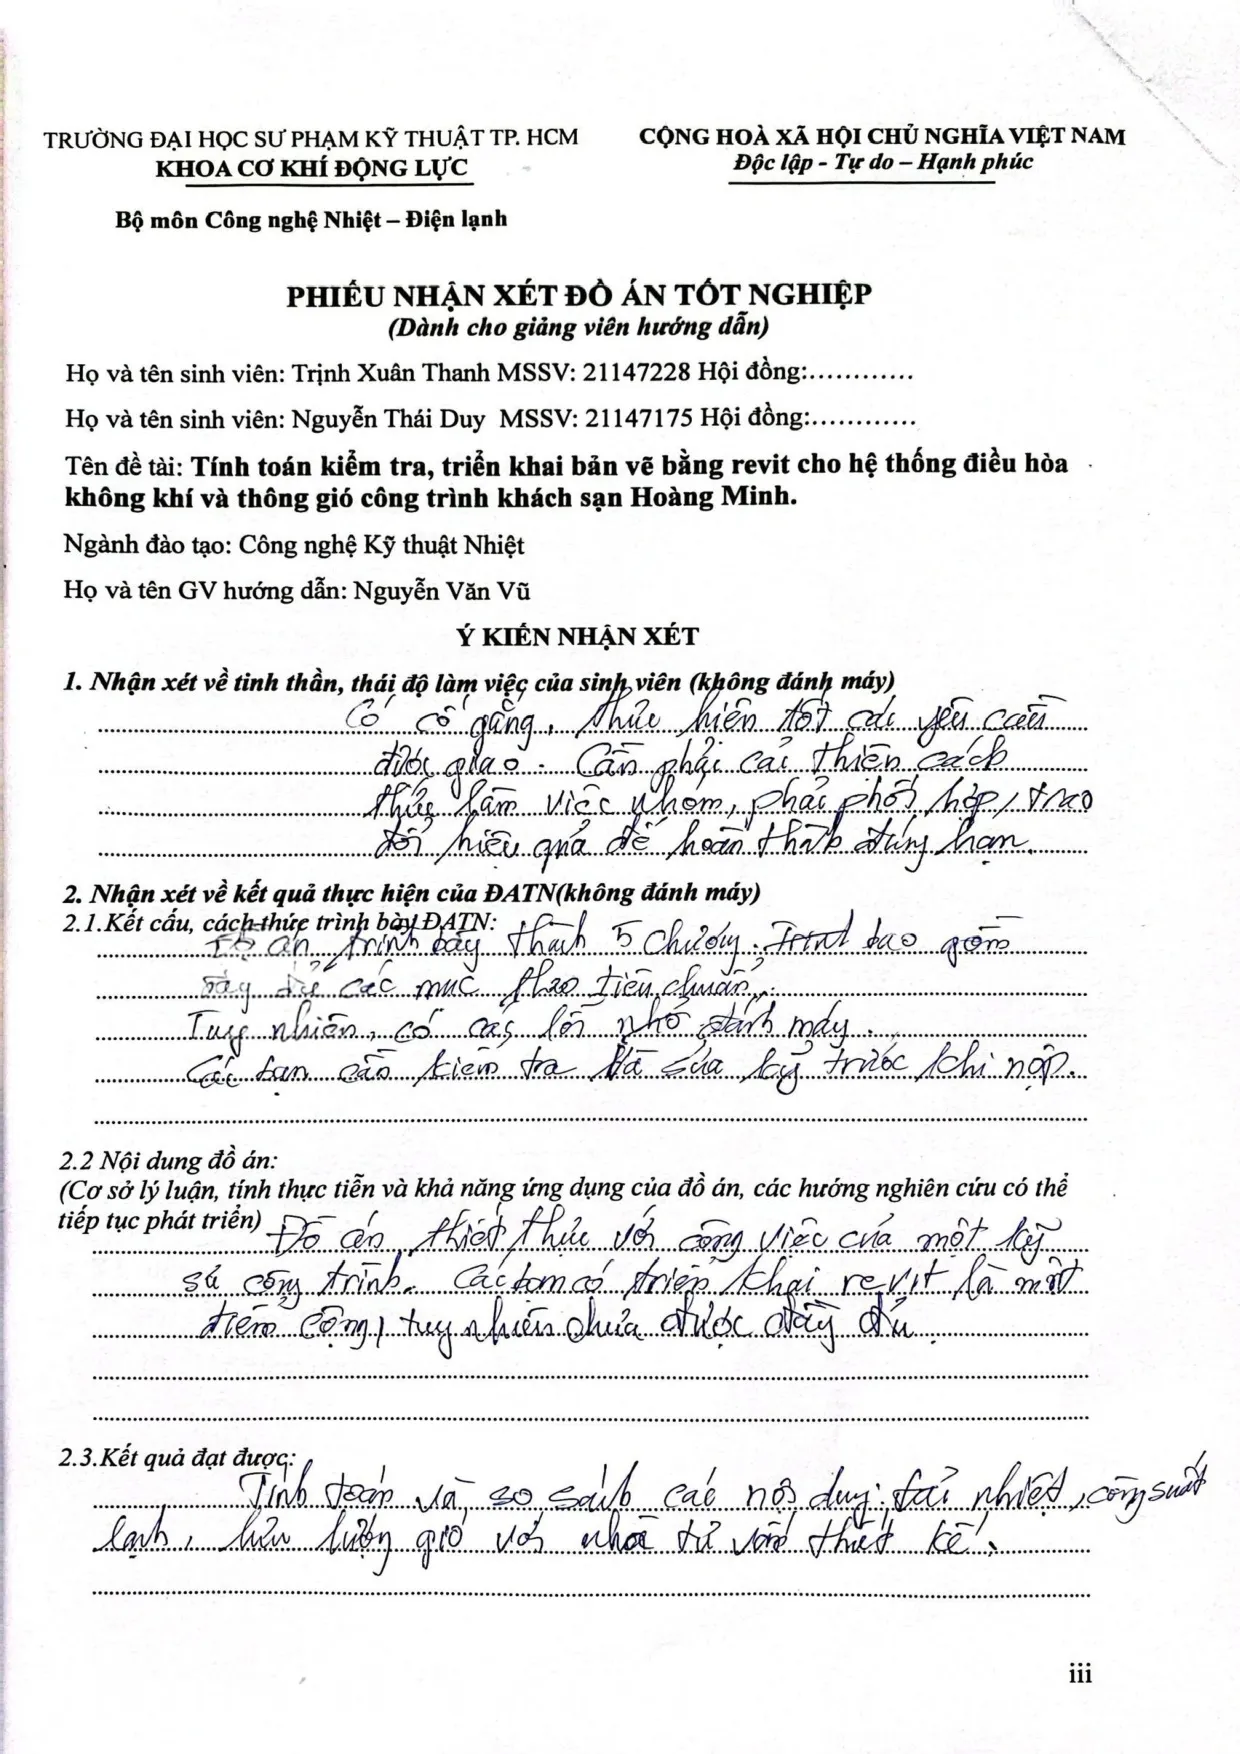 TRƯỜNG ĐẠI HỌC SƯ PHẠM KỸ THUẬT TP. HCM
KHOA CƠ KHÍ ĐỘNG LỰC
Bộ môn Công nghệ Nhiệt – Điện lạnh
CỘNG HOÀ XÃ HỘI CHỦ NGHĨA VIỆT NAM
Độc lập - Tự do – Hạnh phúc
PHIẾU NHẬN XÉT ĐỒ ÁN TỐT NGHIỆP
(Dành cho giảng viên hướng dẫn)
Họ và tên sinh viên: Trịnh Xuân Thanh MSSV: 21147228 Hội đồng:............
Họ và tên sinh viên: Nguyễn Thái Duy MSSV: 21147175 Hội đồng:............
Tên đề tài: Tính toán kiểm tra, triển khai bản vẽ bằng revit cho hệ thống điều hòa
không khí và thông gió công trình khách sạn Hoàng Minh.
Ngành đào tạo: Công nghệ Kỹ thuật Nhiệt
Họ và tên GV hướng dẫn: Nguyễn Văn Vũ
Ý KIẾN NHẬN XÉT
1. Nhận xét về tinh thần, thái độ làm việc của sinh viên (không đánh máy)
Có cố gắng, thực hiện tốt các yêu cầu
được giao. Cần phải cải thiện cách
thức làm việc nhóm, phải phối hợp, trao
đổi hiệu quả để hoàn thành đúng hạn.
2. Nhận xét về kết quả thực hiện của ĐATN(không đánh máy)
2.1.Kết cấu, cách thức trình bày ĐATN:
Đồ án trình bày thành 5 chương. bao gồm
đầy đủ các mục theo tiêu chuẩn.
Tuy nhiên, có các lỗi nhỏ đánh máy.
Các bạn cần kiểm tra và sửa kỹ trước khi nộp.
2.2 Nội dung đồ án:
(Cơ sở lý luận, tính thực tiễn và khả năng ứng dụng của đồ án, các hướng nghiên cứu có thể
tiếp tục phát triển)
Đồ án thiết thực với công việc của một kỹ
sư công trình. Các bạn có triển khai revit là một
điểm cộng, tuy nhiên chưa được đầy đủ.
2.3.Kết quả đạt được:
Tính toán và so sánh các nội dung: tải nhiệt, công suất
lạnh, lưu lượng gió với nhà tư vấn thiết kế.
iii